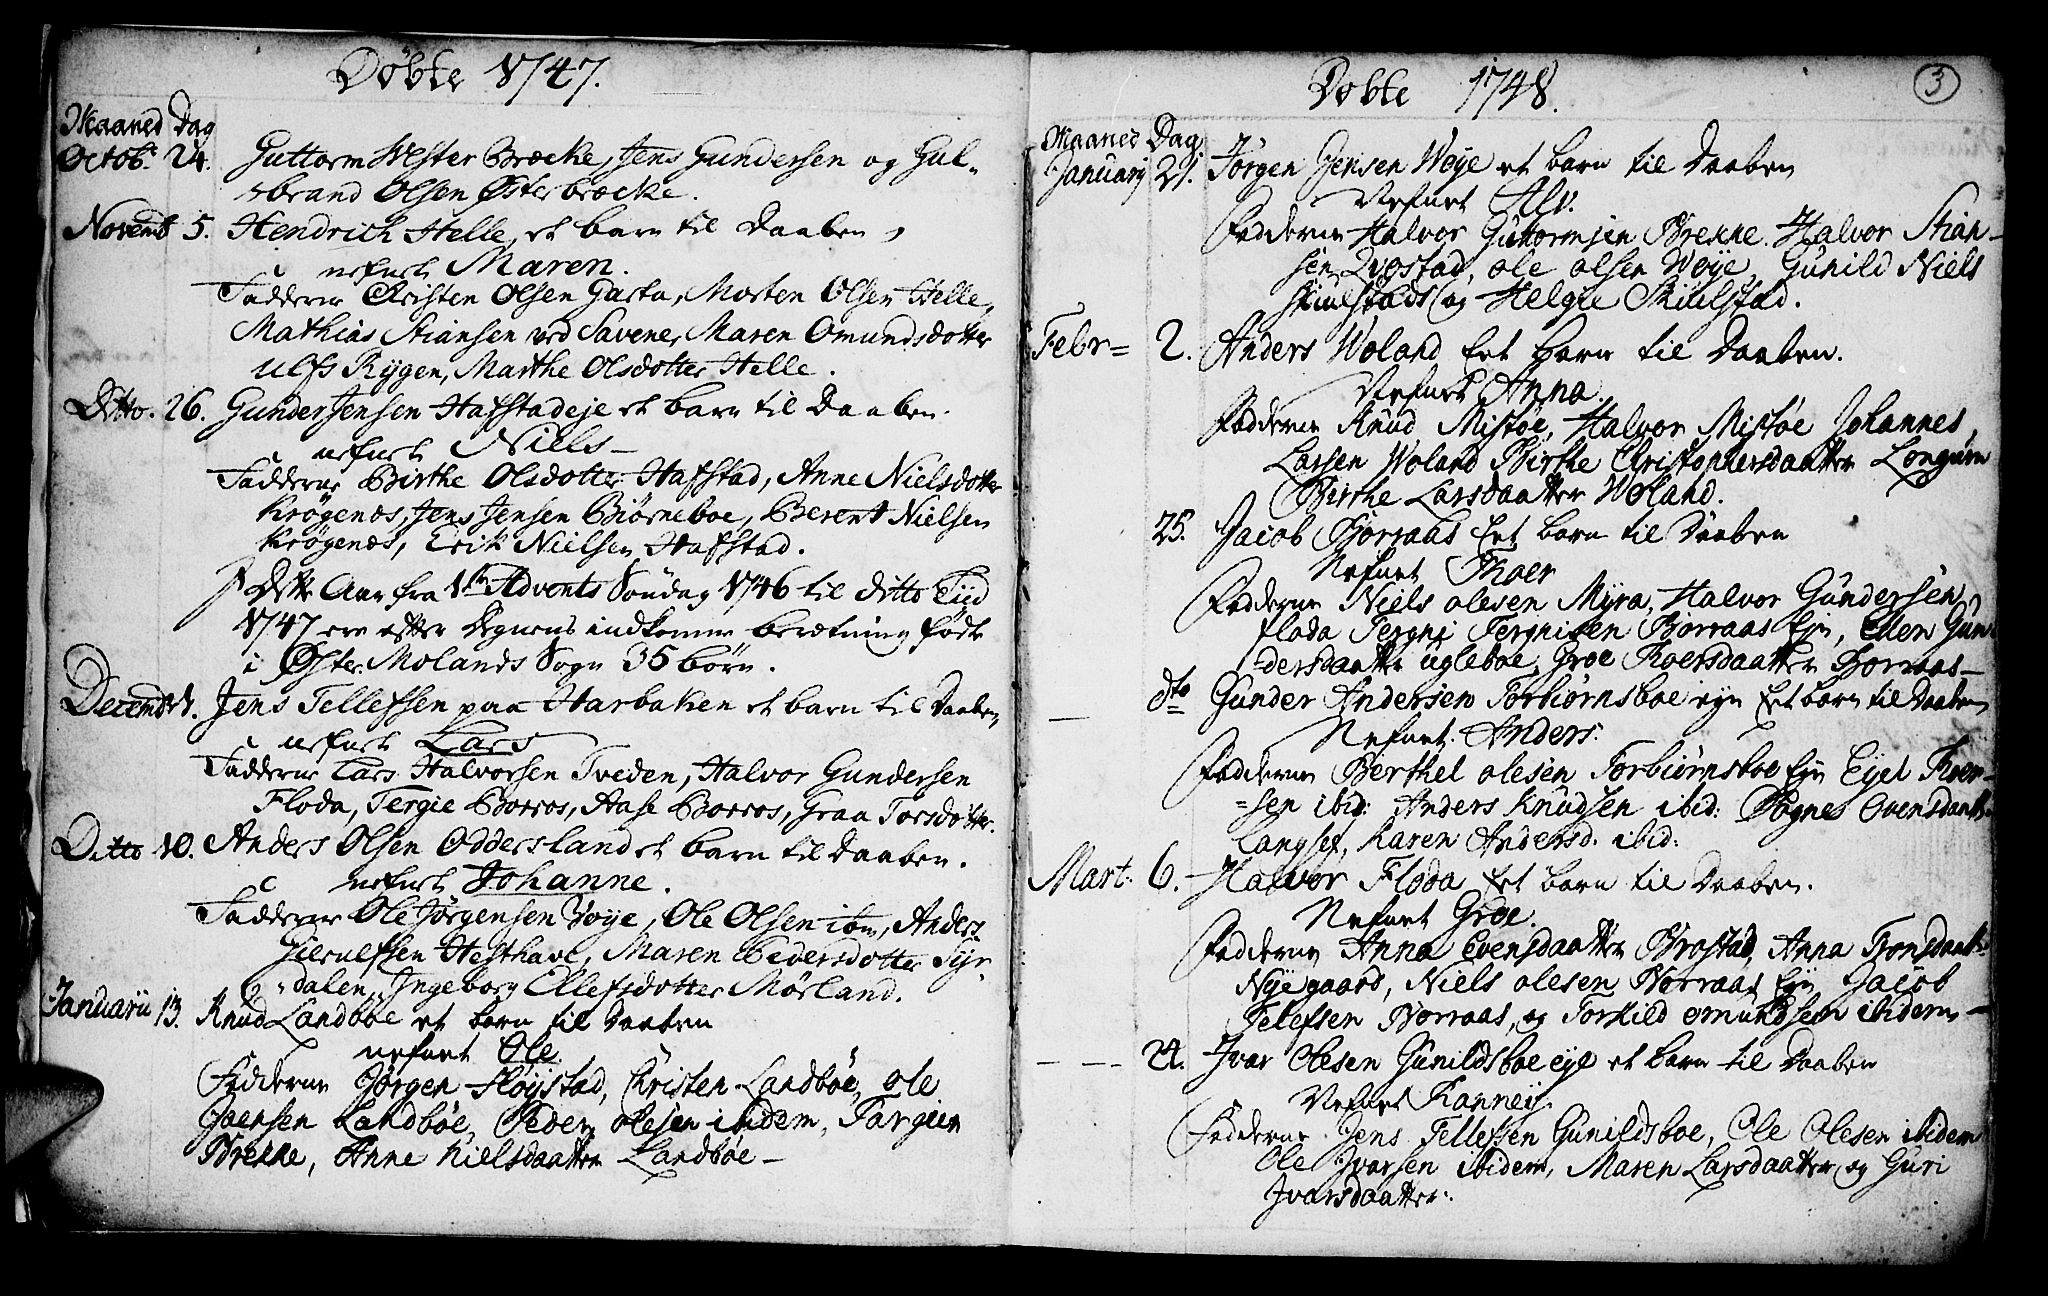 Döbte 1747.
Maaned Dag
Octob. 24. Guttorm Vester Brøcke, Jens Gundersen og Gul-
brand Olsen Øster brøcke.
Novemb 5. Hendrich Helle, et barn til Daaben,
nefnt Maren.
Fadderne Christen Olsen Garta, Morten Olsen Helle,
Mathias Stiansen ved Savene, Maren Omundsdotter
Ulfs Rygen, Marthe Olsdotter Helle.
Ditto. 26. Gunder Jensen Hafstadeje et barn til Daaben.
nefnt Niels
Fadderne Birthe Olsdotter Hafstad, Anne Nielsdotter
Krøgenæs, Jens Jensen Biørneboe, Berent Nielsen
Krøgenæs, Erik Nielsen Hafstad.
Dette Aar fra 1te Advents Søndag 1746 til ditto Tiid
1747 ere efter Degnens indkomne beretning født
i Øster Molands Sogn 35 børn.
Decembr 1. Jens Tellefsen paa Harbaken et barn til Daaben,
nefnt Lars
Fadderne Lars Halvorsen Tveden, Halvor Gundersen
Floda, Tergie Borros, Aase Borros, Graa Torsdotter.
Ditto 10. Anders Olsen Oddersland et barn til Daaben.
nefnt Johanne.
Fadderne Ole Jørgensen Vøye, Ole Olsen ibm, Anders
Gierulfsen Hesthave, Maren Siversdotter Syr-
dalen, Ingeborg Ellefsdotter Mørland.
Januarii 13. Knud Landbøe et barn til Daaben
nefnt Ole.
Fadderne Jørgen Høystad, Christen Landbøe, ole
Joensen Landbøe, Peder olesen ibidem, Targiin
Brekke, Anne Nielsdaatter Landbøe
Döbte 1748.
3
Maaned Dag
Januarij 21. Jørgen Jensen Wøye et barn til Daaben
Nefnt Alv.
Fadderne Halvor Guttormsen Brekke, Halvor Stian-
sen Qvostad, ole olsen Wøye, Gunild Niels
Skiulstads og Helgie Skiulstad.
Febr 2. Anders Woland Eet barn til Daaben.
Nefnt Anna.
Fadderne Knud Mistøe, Halvor Mistøe Johannes
Larsen Woland Birthe Christophersdaatter Longum
Birthe Larsdaatter Woland.
25. Jacob Borraas Eet barn til Daaben
Nefnt Thoer
Fadderne Niels olesen Myra, Halvor Gundersen
floda Tergni Tergnisen Borraas Eyn, Ellen Gun-
dersdaatter ugleboe, Groe Thoersdaatter Borraas
dto Gunder Andersen Torbiørnsboe eyn Eet barn til Daaben
Nefnt. Anders.
Fadderne Berthel olesen Torbiørnsboe Eyn Eyel Thoer-
sen ibid: Anders Knudsen ibid: Sogner Evensdaatter
Langsef, Karen Andersd. ibid:
Mart: 6. Halvor Floda Eet barn til Daaben.
Nefnt Groe.
Fadderne Anna Evensdaatter Brostad, Anna Tronsdaatter
Nyegaard, Niels olesen Borraas Eyn Jacob
Telefsen Borraas, og Torkild omundsen ibidem
24. Ivar Olesen Gunildsboe eye et barn til Daaben
Nefnt Ranney.
Fadderne Jens Tellefsen Gunildsboe, Ole Olesen ibidem
Ole Ivarsen ibidem, Maren Larsdaatter og Guri
Ivarsdaatter.